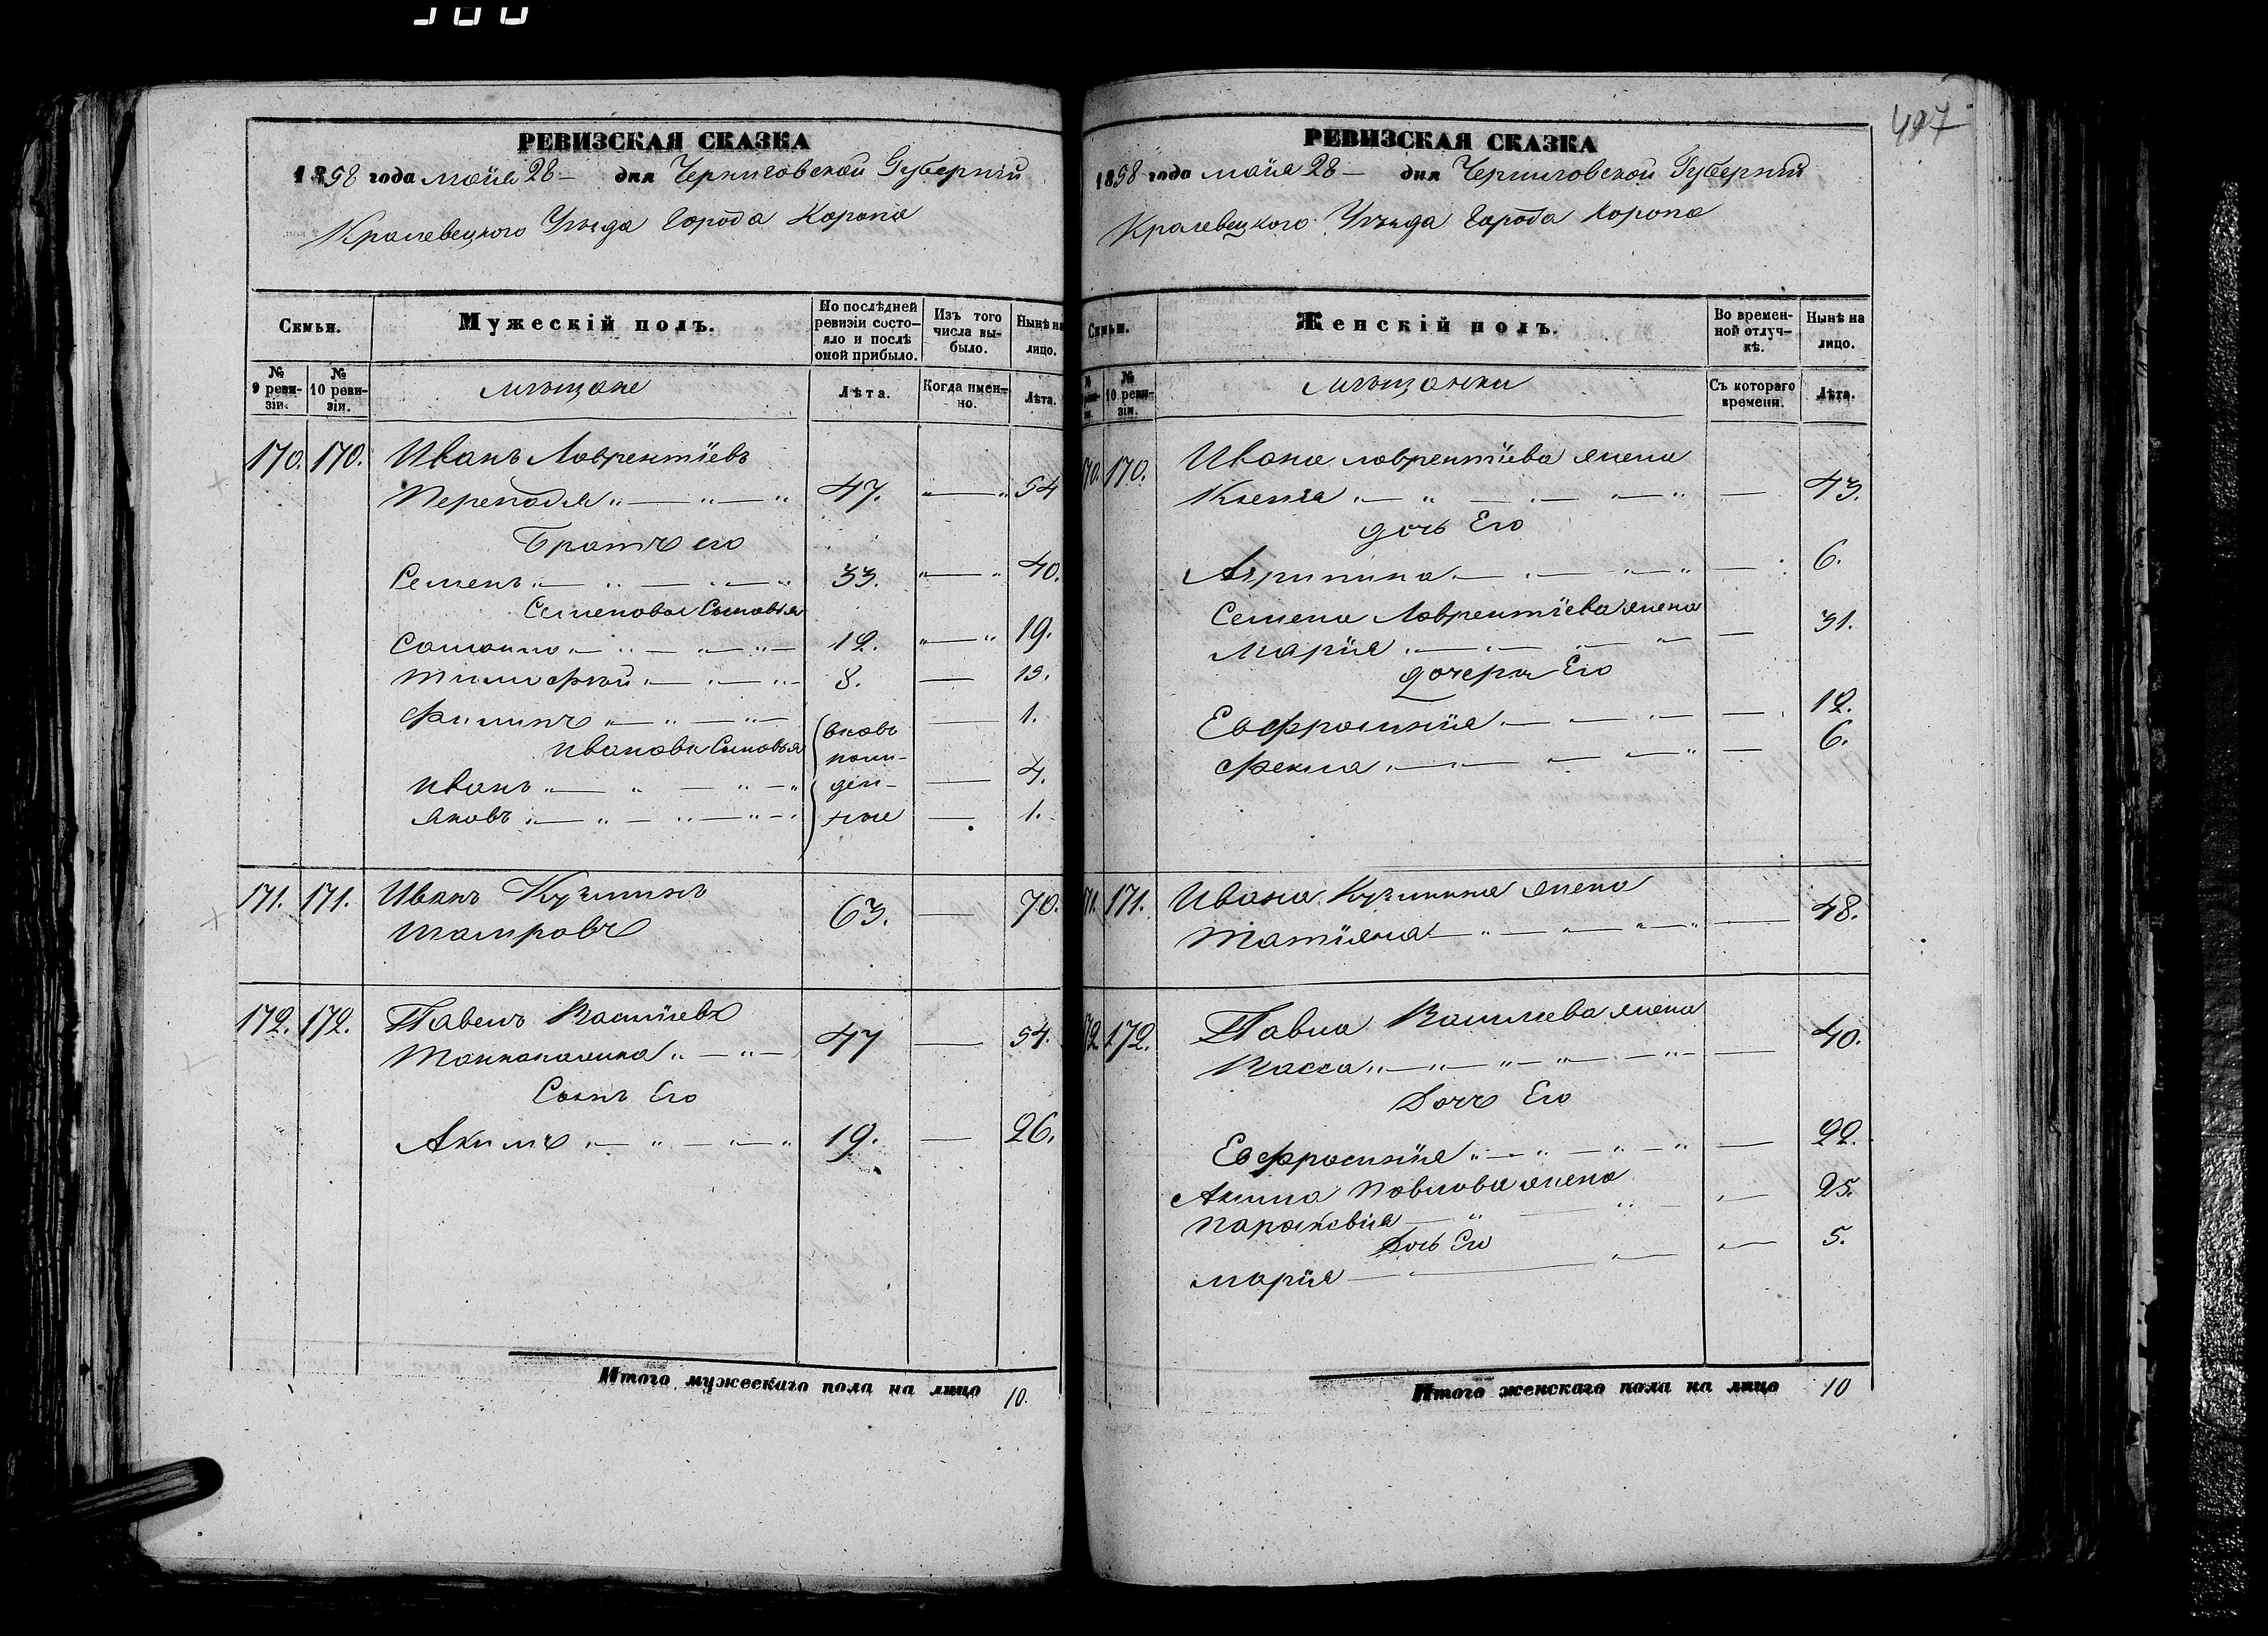 497
РЕВИЗСКАЯ СКАЗКА
1858 года маія 28 — дня Черниговской Губерніи
Кролевецкого Уѣзда Города Коропа
Семьи.
Мужескій полъ.
По послѣдней ревизіи состояло и послѣ оной прибыло.
Изъ того числа выбыло.
Нынѣ на лицо.
№ 9 ревизіи.
№ 10 ревизіи.
мѣщане
Лѣта.
Когда именно.
Лѣта.
170. 170. Иванъ Лаврентіевъ
47. 54
Братъ его
Семенъ 33. 40.
Семеновы Сыновья
12. 19.
Тимофей 8. 15.
Филипъ 1.
Ивановы Сыновья
вновь
Иванъ 4.
Яковъ 1.
171. 171. Иванъ Кузминъ
63. 70.
172. 172. Павелъ Василіевъ
47 54.
Сынъ Его
Акимъ 19. 26.
Итого мужескаго пола на лицо 10.
РЕВИЗСКАЯ СКАЗКА
1858 года маія 28 — дня Черниговской Губерніи
Кролевецкого Уѣзда Города Коропа
Семьи.
Женскій полъ.
Во временной отлучкѣ.
Нынѣ на лицо.
№ 10 ревизіи.
мѣщанки
Съ котораго времени.
Лѣта.
170. 170. Ивана Лаврентіева жена
Ксенія 43.
дочь Его
Агрипина 6.
Семена Лаврентіева жена
Марія 31.
дочери Его
Евфросинія 12.
Фекла 6.
171. 171. Ивана Кузмина жена
Татіяна 48.
172. 172. Павла Василіева жена
Васса 40.
Дочь Его
Евфросинія 22.
Акима Павлова жена
Парасковія 25.
Дочь Его
Марія 5.
Итого женскаго пола на лицо 10